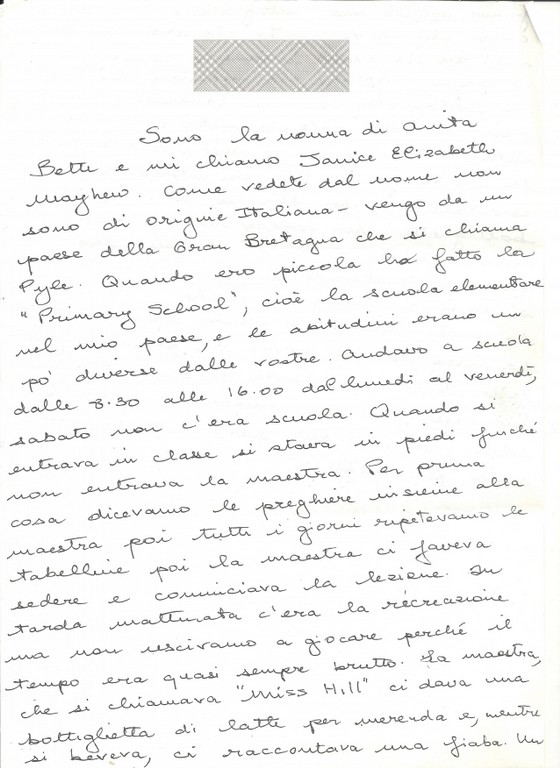 Sono la nonna di Anita
Betti e mi chiamo Janice Elizabeth
Mayhew. Come vedete dal nome non
sono di origine Italiana - vengo da un
paese della Gran Bretagna che si chiama
Pyle. Quando ero piccola ho fatto la
"Primary School", cioè la scuola elementare
nel mio paese, e le abitudini erano un
pò diverse dalle vostre. Andavo a scuola
dalle 8.30 alle 16.00 dal lunedi al venerdì,
sabato non c'era scuola. Quando si
entrava in classe si stava in piedi finché
non entrava la maestra. Per prima
cosa dicevamo le preghiere insieme alla
maestra poi tutti i giorni ripetevamo le
tabelline poi la maestra ci faceva
sedere e cominciava la lezione. In
tarda mattinata c'era la récreazione
ma non uscivamo a giocare perché il
tempo era quasi sempre brutto. La maestra,
che si chiamava "Miss Hill" ci dava una
bottiglietta di latte per merenda e, mentre
si beveva, ci raccontava una fiaba. Un